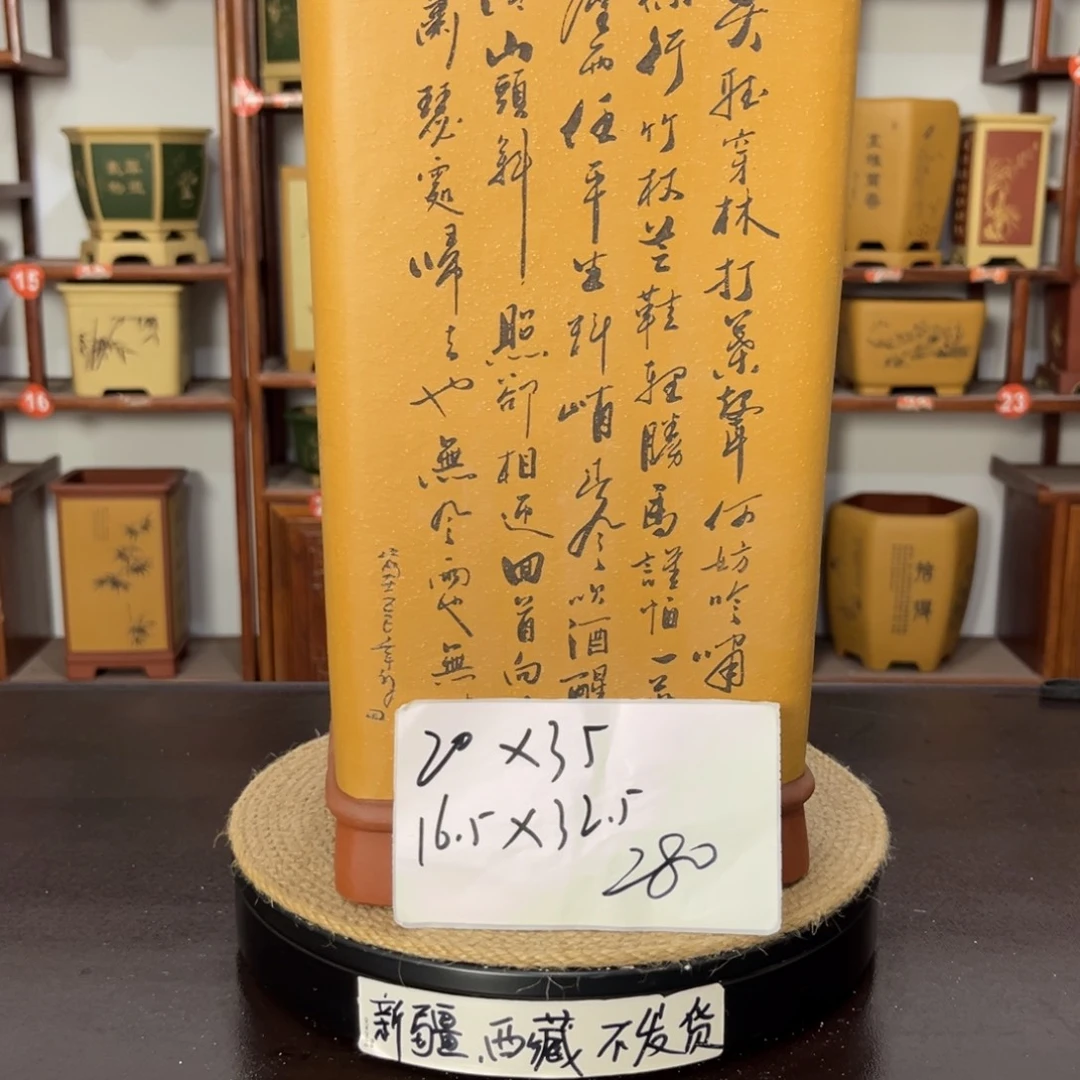 莫聽穿林打葉聲何妨吟嘯
徐行竹杖芒鞋輕勝馬誰怕一蓑
煙雨任平生料峭春風吹酒醒
冷山頭斜照卻相迎回首向
蕭瑟處歸去也無風雨也無
20×35
16.5×32.5
280
新疆.西藏不发货
15
16
23